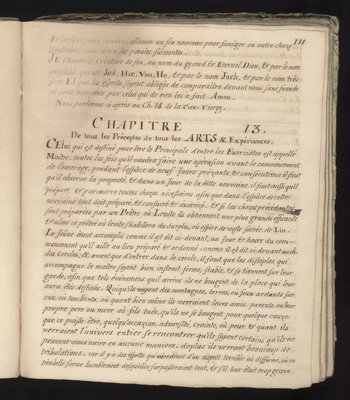 111
allumer un feu nouveau pour fumiger ou autre chose
les paroles suivantes.
Je Créature de feu, au nom du grand & Eternel Dieu, & par le nom
Jod, Hee, Vau, He, & par le nom Jaeh, & par le nom
les esprits soyent obligés de comparaître devant nous sans fraude
par celui qui de rien les a fait Amen.
Ch. 18 de la Cire Vierge.
CHAPITRE 13.
De tous les Préceptes de tous les ARTS & Expériences.
Celui qui est destiné pour être le Principal d'entre les Exorcistes est appellé
Maître, toutes les fois qu'il voudra faire une opération avant le commencement
de l'ouvrage, pendant l'espace de neuf jours pensants & consécutives il faut
qu'il observe la propreté, & dans un jour de la ditte neuvaine, il faut aussi qu'il
prépare & parcourre toutes choses nécessaires afin que dans l'espace de cette
neuvaine tout soit préparé, & consacré & exorcisé. & si les choses
sont préparées par un Prêtre ou Lévite ils obtiennent une plus grande efficacité
& alors ce prêtre ou lévite s'habillera du surplis, où espèce de veste sacrée, de Lin.
Le frère étant accompli comme il est dit ci-devant, au jour & heure du com-
mencement qu'il aille au lieu préparé & ordonné comme il est dit ci devant au ch.
des Cercles, & avant que d'entrer dans le cercle, il faut que les disciples qui
accompagne le maître soyent bien instruit ferme, stable, & se tiennent sur leur
garde, afin que tels évènemens qu'il arrive ils ne bougent de la place qui leur
aura étés destinés. Quoi qu'ils voyent des montagnes, terres, ou feux ardents sur
eux, ou tombants, où quant bien même ils verroient leurs amis, parents, ou leur
propre père ou mère où fils tués, qu'ils ne se bougent pour quelque cause
que ce puisse être, quelqu'occasion, adversité, crainte, où peur & quant ils
verraient l'univers entier se rencontrer qu'ils soyent certains qu'ils ne
peuvent vous nuire en aucune manière, de plus ils verront beaucoup de
tribulations, car il y a des esprits qui viendront d'un aspect terrible où difforme, où en
belle forme humblement desquelles surpasseroient tout, & s'il leur était trop grave